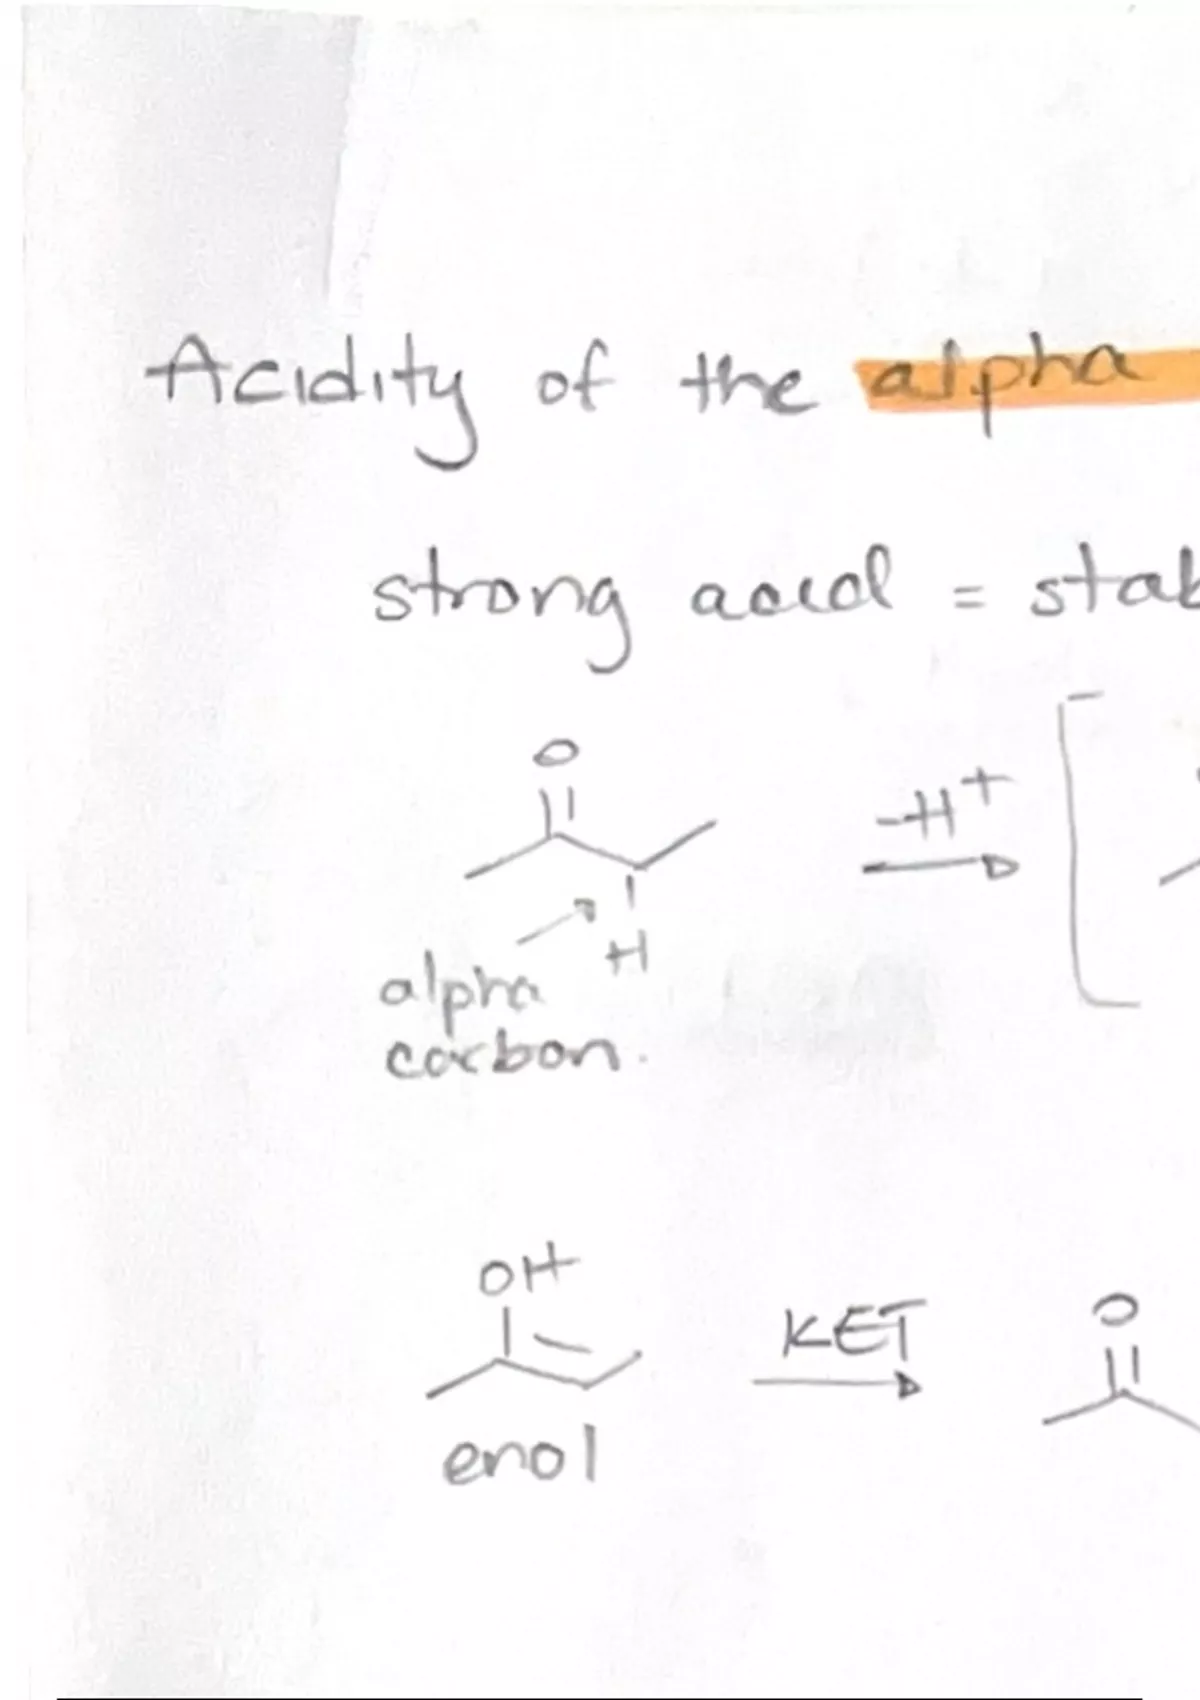 Acidity of the alpha
strong acid = stab
O
-H+
H
alpha
carbon.
OH
KET
O
enol